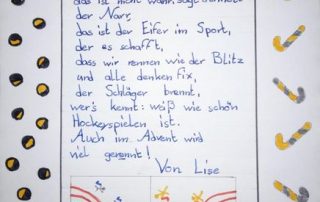 das ist nicht wahr, sagt
der Narr,
das ist der Eifer im Sport,
der es schafft,
dass wir rennen wie der Blitz
und alle denken fix,
der Schläger brennt,
wer's kennt: weiß wie schön
Hockeyspielen ist.
Auch im Advent wird
viel gerannt!
Von Lise